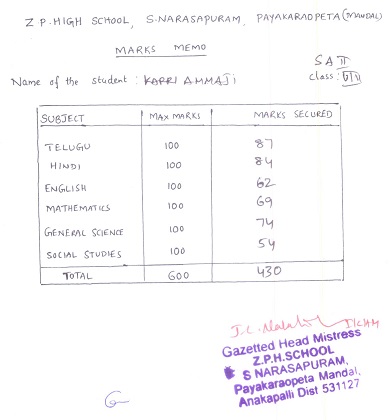 Z.P.HIGH SCHOOL, S.NARASAPURAM, PAYAKARAOPETA(MANDAL)
MARKS MEMO
SA II
Name of the student : KARRI AMMAJI
class: VII
SUBJECT MAX MARKS MARKS SECURED
TELUGU 100 87
HINDI 100 84
ENGLISH 100 62
MATHEMATICS 100 69
GENERAL SCIENCE 100 74
SOCIAL STUDIES 100 54
TOTAL 600 430
Gazetted Head Mistress
Z.P.H.SCHOOL
S NARASAPURAM,
Payakaraopeta Mandal,
Anakapalli Dist 531127